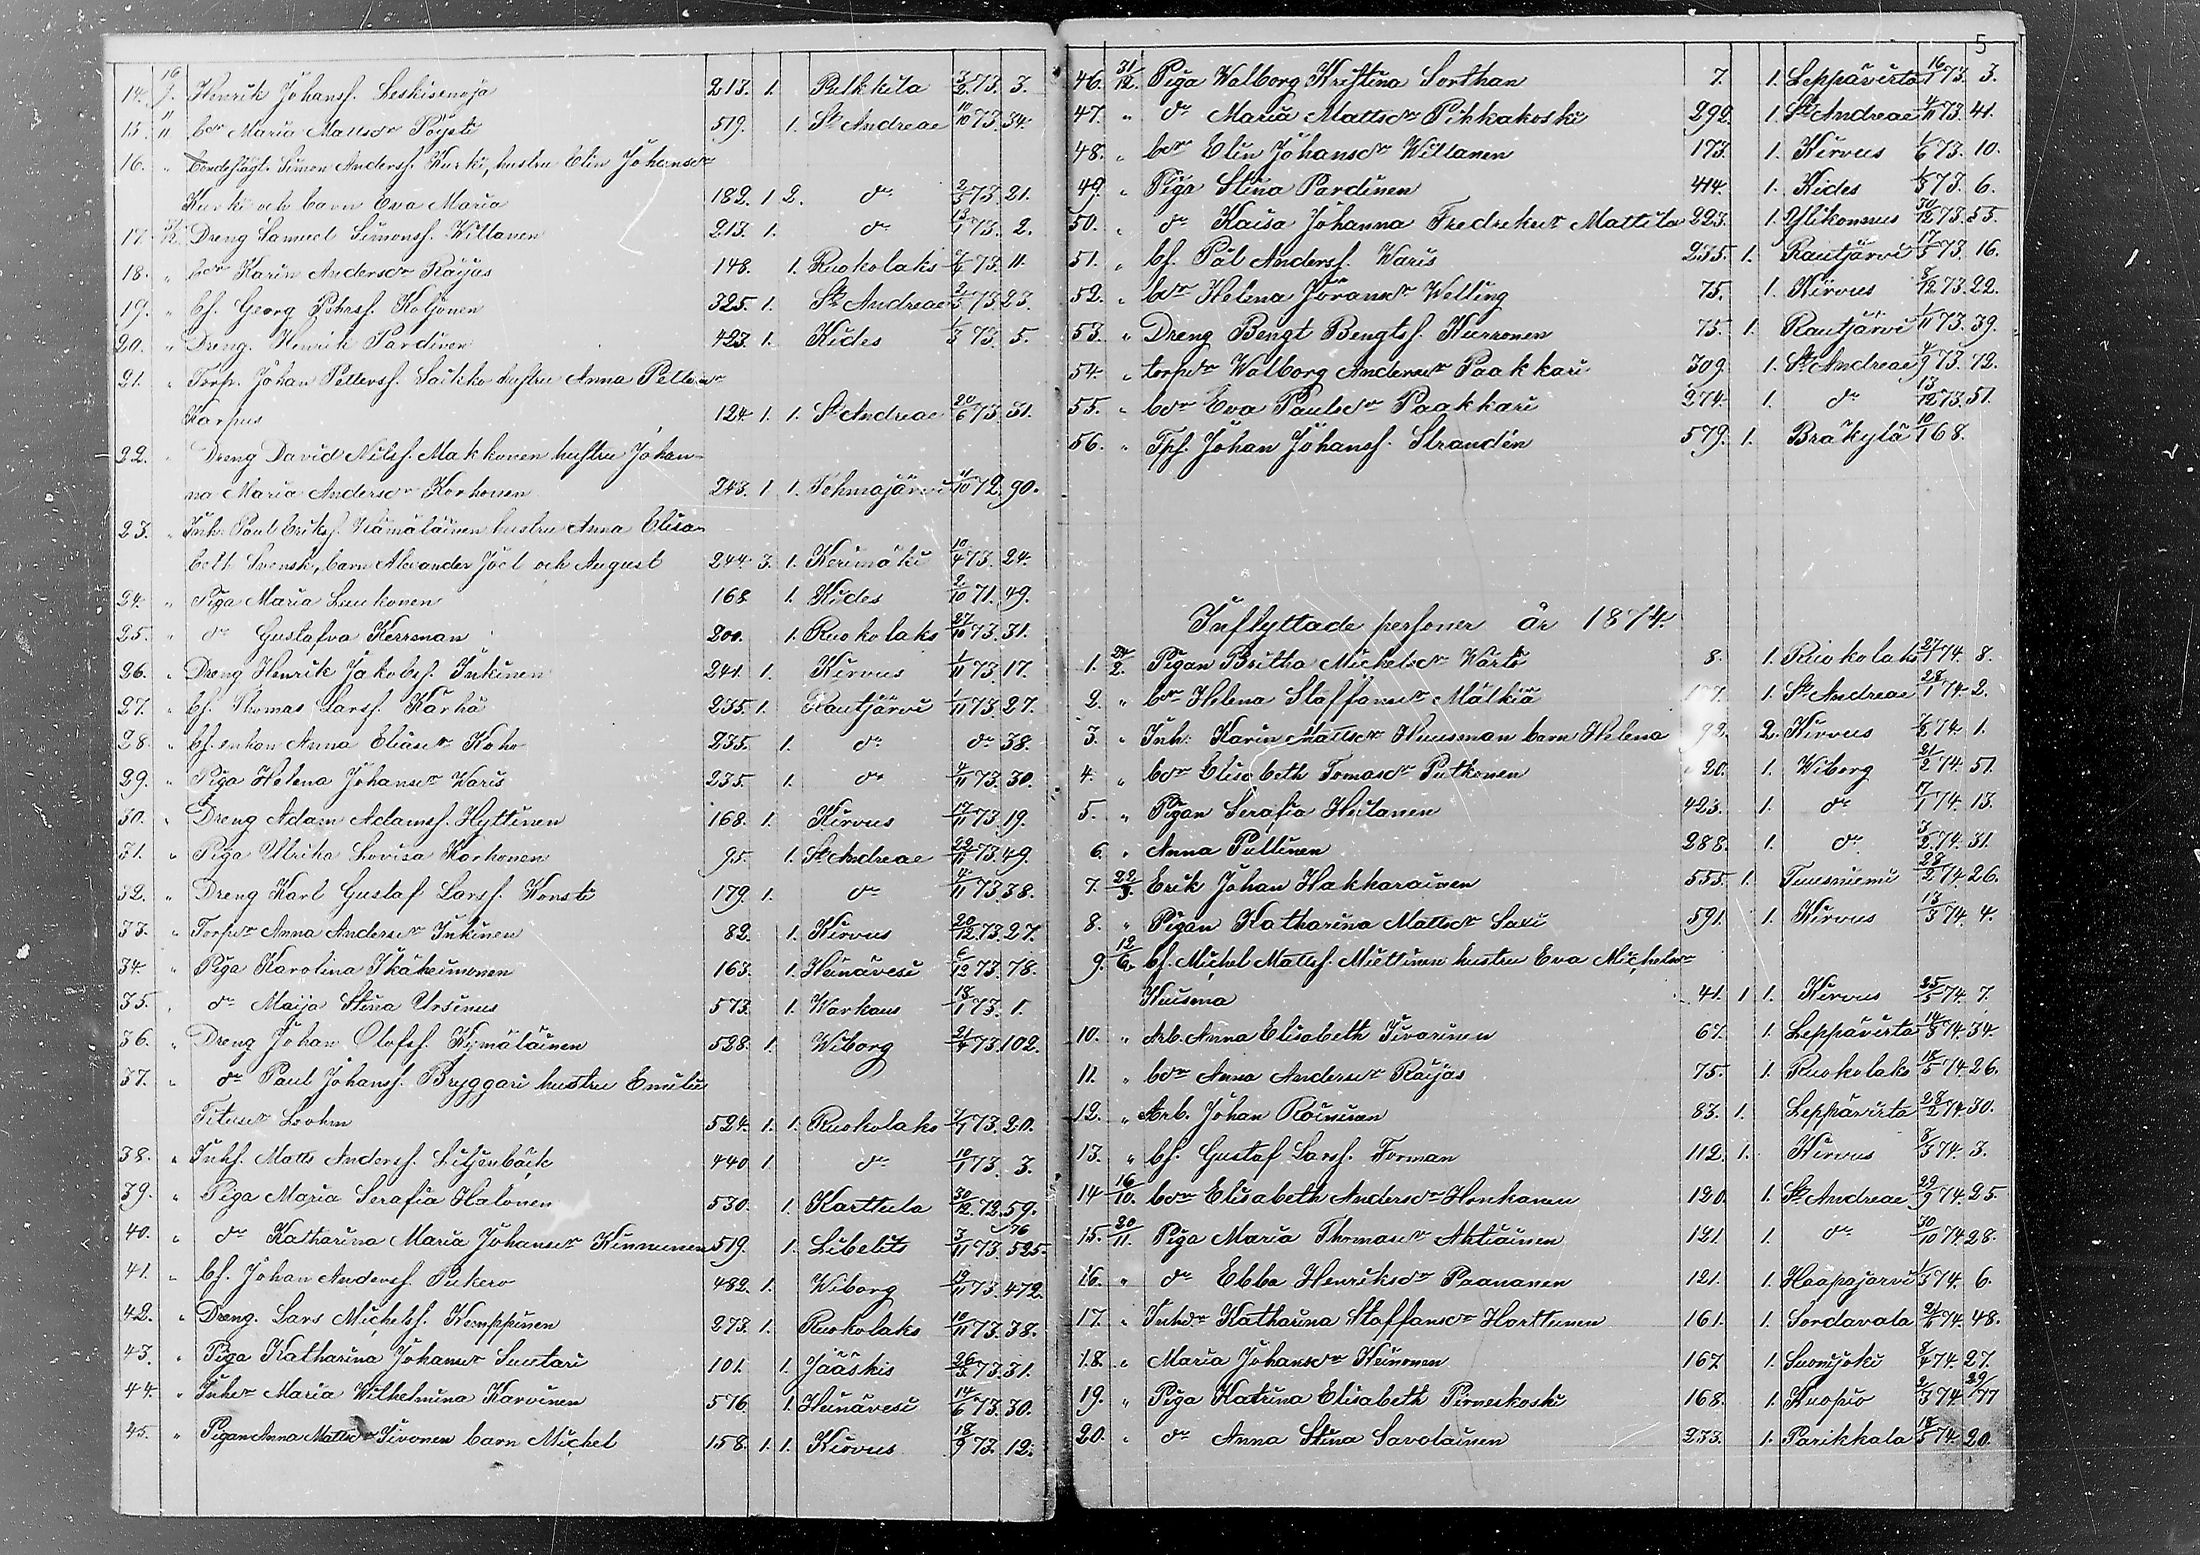 14. 16/9. Henrik Johansf. Leskisenoja 213. 1. Pelkkila 3/2 73. 3.
15. 11/11 bdr Maria Mattsdr Pöysti 519. 1. St Andreae 10/10 73. 34.
16. " Bondeflägt. Simon Andersf. Kurki, hustru Elin Johansdr
Kurki och barn Eva Maria 182. 1 2. dr 2/3 73. 21.
17. Dreng Samuel Simonsf. Wiltanen 213. 1. dr 13/1 73. 2.
18. " bdr Karin Andersdr Räijäs 148. 1. Ruokolaks 73. 11.
19. " bf. Georg Pehrsf. Koljonen 325. 1. St Andreae 2/5 73 23.
20. " Dreng. Henrik Pardinen 423. 1. Kides 1/3 73. 5.
21. " Torp. Johan Pettersf. Saikko hustru Anna Pettersdr
Karpus 124. 1. 1. St Andreae 20/6 73. 31.
22. " Dreng David Nilsf. Makkonen hustru Johan-
na Maria Andersdr Korhonen 243. 1 1. Tohmajärvi 11/10 72. 90.
23. " Inh. Paul Eriksf. Hämäläinen hustru Anna Elisa-
beth Svensk, barn Alexander Joel och August 244. 3. 1. Kerimäki 10/4 73. 24.
24. " Piga Maria Luukonen 168. 1. Kides 2/10 71. 49.
25. " dr Gustafva Herrman 200. 1. Ruokolaks 27/10 73. 31.
26. " Dreng Henrik Jakobsf. Inkinen 241. 1. Kirvus 1/11 73. 17.
27. " bf. Thomas Larsf. Kärhä 235. 1. Rautjärvi 1/11 73. 27.
28. " bf. enkan Anna Eliasdr Koho 235. 1. dr dr 38.
29. " Piga Helena Johansdr Waris 235. 1. dr 4/11 73. 30.
30. " Dreng Adam Adamsf. Hyttinen 168. 1. Kirvus 17/11 73. 19.
31. " Piga Ulrika Lovisa Korhonen 95. 1. St Andreae 22/11 73. 49.
32. " Dreng Karl Gustaf Larsf. Konsti 179. 1. dr 11 73 38.
33. " Torpdr Anna Andersdr Inkinen 82. 1. Kirvus 20/12 73. 27.
34. " Piga Karolina Ikäheimonen 163. 1. Heinävesi 6/12 73. 78.
35. " dr Maija Stina Ursinus 573. 1. Warkaus 18/1 73. 1.
36. " Dreng Johan Olofsf. Kymäläinen 528. 1. Wiborg 21/4 73. 102.
37. " dr Paul Johansf. Bryggari hustru Emilia
Titusdr Lohm 524. 1. 1. Ruokolaks 73. 20.
38. " Inhf. Matts Andersf. Liljenbäck 440 1. dr 10/1 73. 3.
39. " Piga Maria Serafia Halonen 530. 1. Karttula 30/12 72. 59.
40. " dr Katharina Maria Johansdr Kinnunen 519. 1. Libelits 3/11 73 525. 76
41. " bf. Johan Andersf. Pukero 482. 1. Wiborg 19/11 73. 472.
42. " Dreng. Lars Michelsf. Kemppinen 273. 1. Ruokolaks 10/11 73. 38.
43. " Piga Katharina Johansdr Suutari 101. 1. Jääskis 26/3 73. 31.
44. " Inhdr Maria Wilhelmina Karvinen 576. 1. Heinävesi 14/6 73. 30.
45. " Pigan Anna Mattsdr Sivonen barn Michel 158. 1. 1. Kirvus 18/9 73. 12.
5
46. 31/12. Piga Walborg Kristina Sorthan 7. 1. Leppävirta 16/1 73. 3.
47. " dr Maria Mattsdr Pikkakoski 292. 1. St Andreae 4/11 73. 41.
48. " bdr Elin Johansdr Willanen 173. 1. Kirvus 1/6 73. 10.
49. " Piga Stina Pardinen 414. 1. Kides 1/3 73. 6.
50. " dr Kaisa Johanna Fredriksdr Mattila 223. 1. Ylikonnus 30/12 73. 55.
51. " bf. Pål Andersf. Waris 235. 1. Rautjärvi 17/3 73. 16.
52. " bdr Helena Göransdr Welling 75. 1. Kirvus 8/12 73. 22.
53. " Dreng Bengt Bengtsf. Kurronen 75. 1. Rautjärvi 1/11 73. 39.
54. " torpdr Walborg Andersdr Paakkari 309. 1. St Andreae 4/9 73. 72.
55. " bdr Eva Paulsdr Paakkari 274. 1. dr 13/12 73. 51.
56. " Tpf. Johan Johansf. Strandén 579. 1. Bräkylä 10/1 68.
Inflyttade personer år 1874.
1. 24/2. Pigan Britha Michelsdr Warti 8. 1. Ruokolaks 27/1 74. 8.
2. " bdr Helena Staffansdr Mälkiä 1. St Andreae 28/1 74. 2.
3. " Inh. Karin Mattsdr Huusman barn Helena 92. 2. Kirvus 74. 1.
4. " bdr Elisabeth Tomasdr Putkonen 20. 1. Wiborg 21/2 74. 51.
5. " Pigan Serafia Heilanen 423. 1. dr 7/1 74. 13.
6. " Anna Pullinen 288. 1. dr 3/2 74. 31.
7. 22/3. Erik Johan Hakkarainen 555. 1. Tuusniemi 28/2 74. 26.
8. " Pigan Katharina Mattsdr Saxi 591. 1. Kirvus 13/3 74. 4.
9. 12/6. bf. Michel Mattsf. Miettinen hustru Eva Michelsdr
Huisma 41. 1 1. Kirvus 25/5 74. 7.
10. " Arb. Anna Elisabeth Tivarinen 67. 1. Leppävirta 14/3 74. 34.
11. " bdr Anna Andersdr Räijäs 75. 1. Ruokolaks 18/5 74. 26.
12. " Arb. Johan Roininen 83. 1. Leppävirta 28/2 74. 30.
13. " bf. Gustaf Larsf. Forman 112. 1. Kirvus 8/3 74. 3.
14 16/10. bdr Elisabeth Andersdr Honkanen 120. 1. St Andreae 29/9 74. 25.
15. 20/11. Piga Maria Thomasdr Ahtiainen 121. 1. dr 30/10 74. 28.
16. " dr Ebba Henriksdr Paananen 121. 1. Haapajärvi 1/3 74. 6.
17. " Inhdr Katharina Staffansdr Harttunen 161. 1. Sordavala 21/6 74. 48.
18. " Maria Johansdr Heinonen 167. 1. Suonijoki 8/4 74. 27.
19. " Piga Katrina Elisabeth Pirneskoski 168. 1. Kuopio 2/3 74. 29/77
20. " dr Anna Stina Savolainen 233. 1. Parikkala 18/3 74. 20.